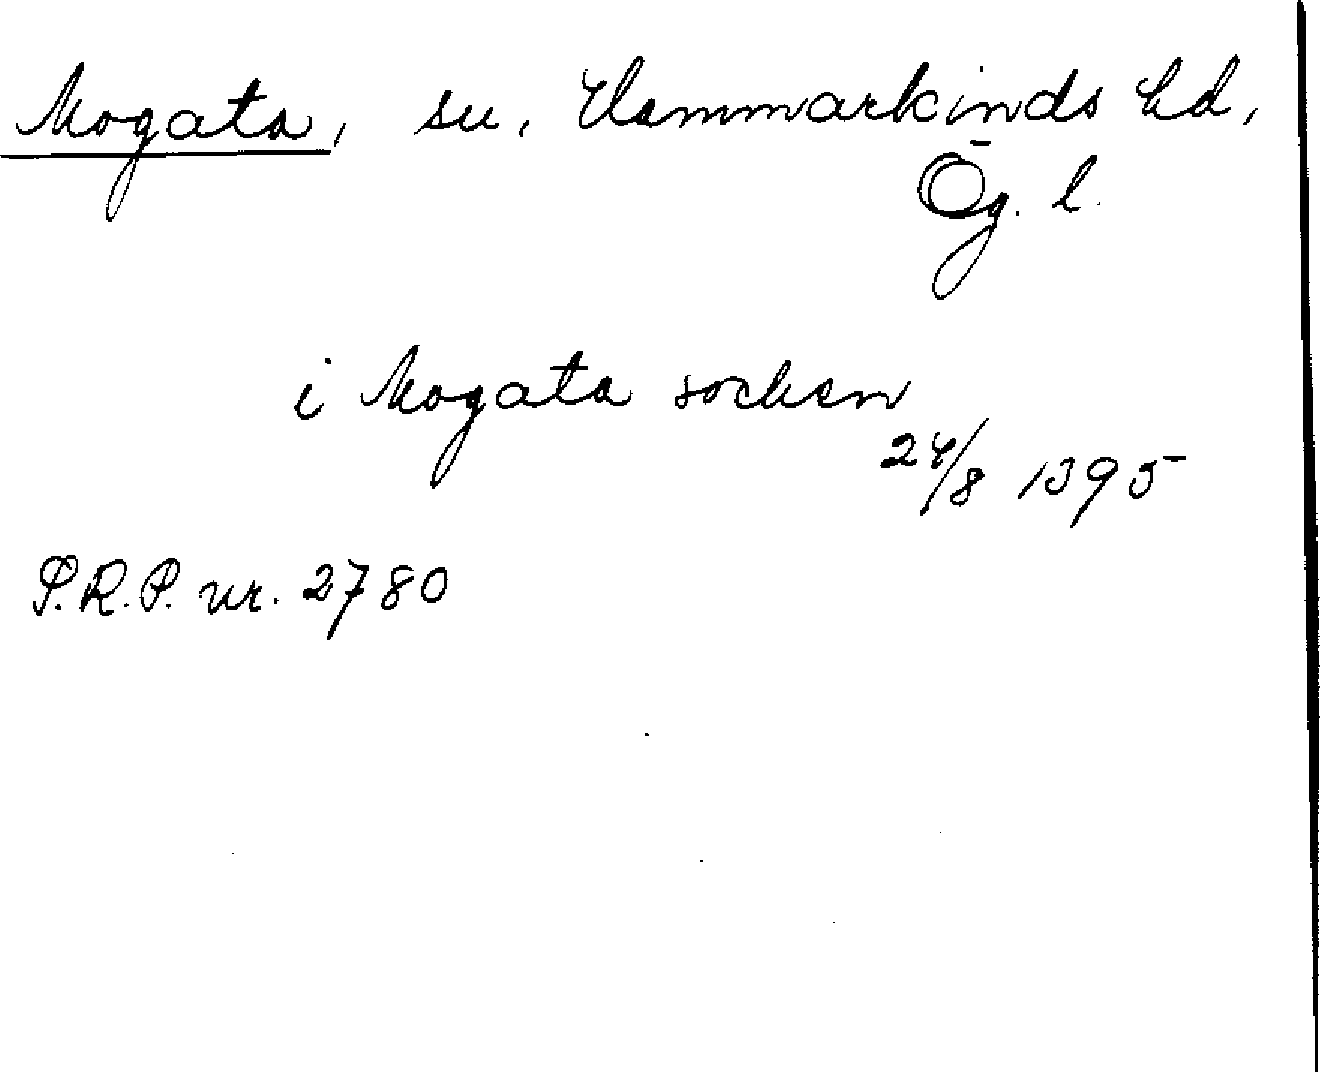 Mogata, sn, Hammarkinds hd,
Ög. l.
i Mogata socken
24/8 1395
S.R.P. nr. 2780